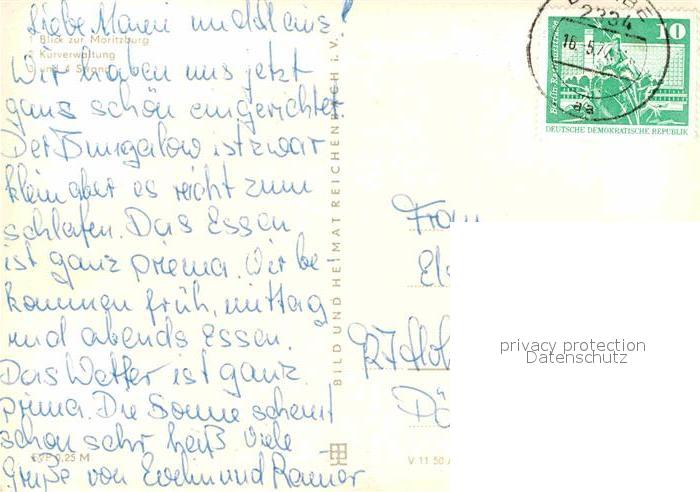 Liebe Mami und Heinz!
Blick zur Moritzburg
Kurverwaltung
Strand
Wir haben uns jetzt
ganz schön eingerichtet.
Der Bungalow ist zwar
klein aber es reicht zum
schlafen. Das Essen
ist ganz prima. Wir be
kommen früh, mittag
und abends Essen.
Das Wetter ist ganz
prima. Die Sonne scheint
schon sehr heiß Viele
EVP 0,25 M
Grüße von Evelin und Rainer
BILD UND HEIMAT REICHENBACH i. V.
V 11 50
2334
16.5.74
aa
10
Berlin
DEUTSCHE DEMOKRATISCHE REPUBLIK
Frau
privacy protection
Datenschutz